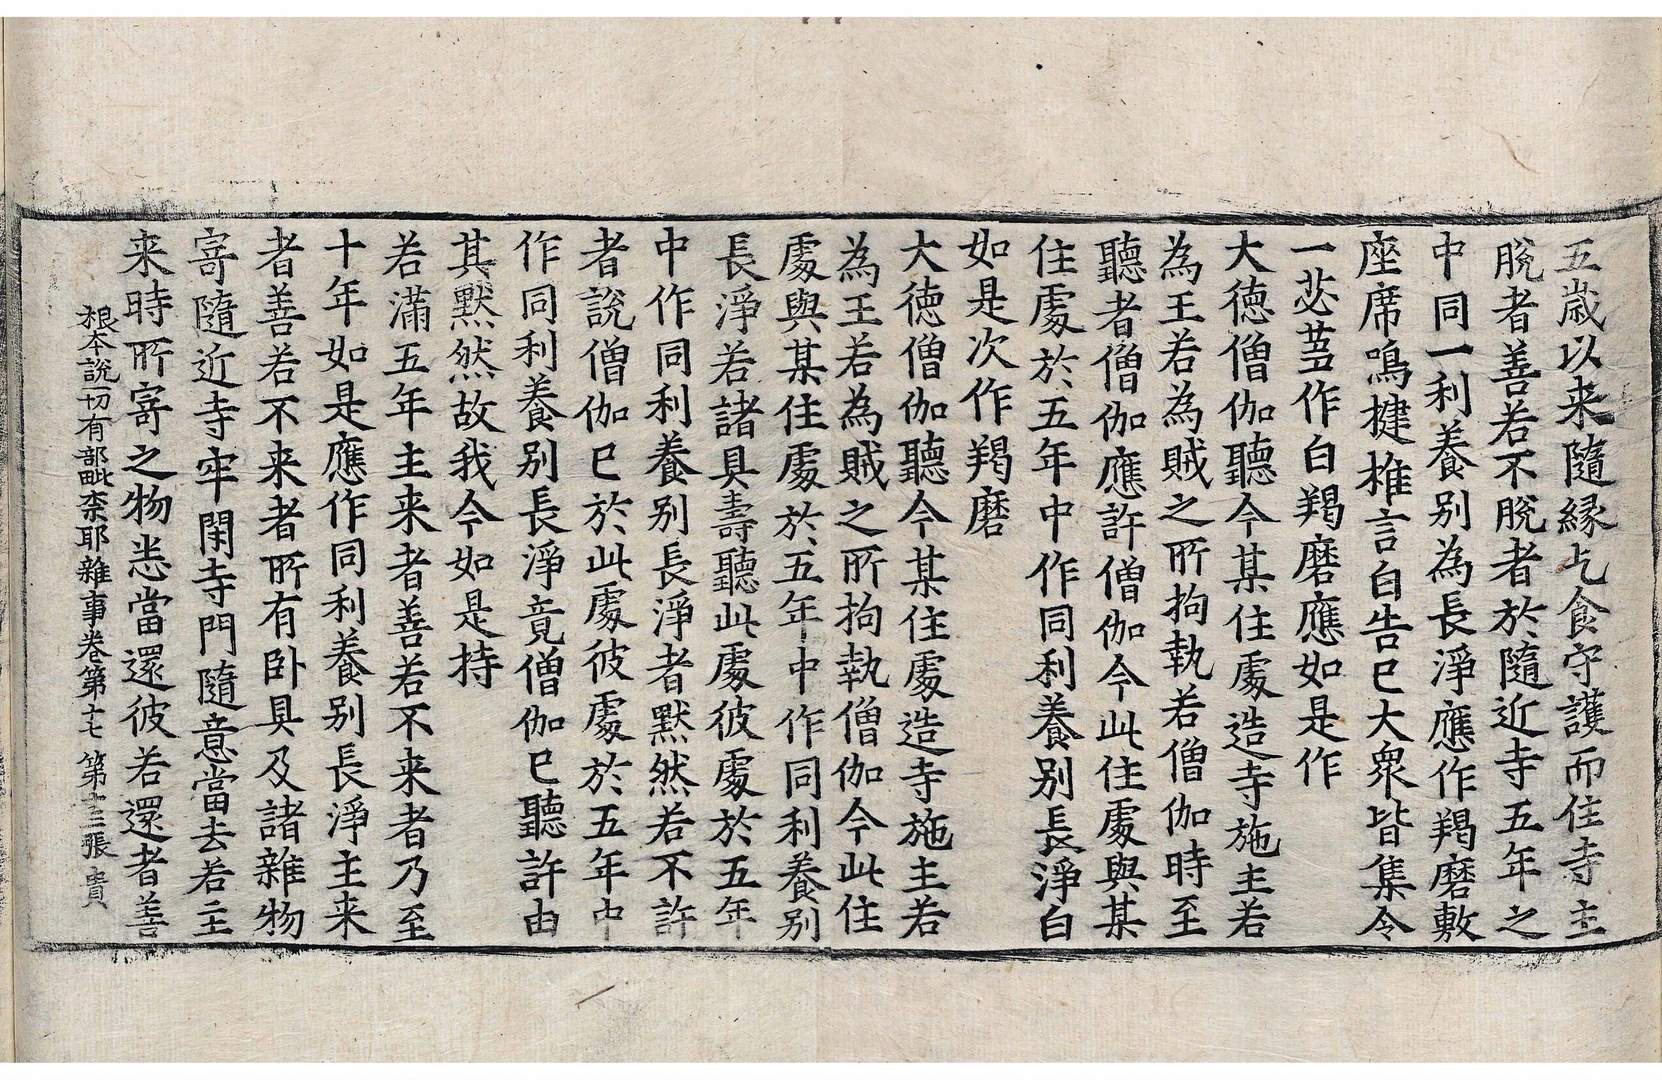 五歳以来隨縁乞食守護而住寺主
脫者善若不脫者於隨近寺五年之
中同一利養別為長淨應作羯磨敷
座席鳴揵椎言白告已大衆皆集令
一苾蒭作白羯磨應如是作
大德僧伽聽今某住處造寺施主若
為王若為賊之所拘執若僧伽時至
聽者僧伽應許僧伽今此住處與某
住處於五年中作同利養別長淨白
如是次作羯磨
大德僧伽聽今某住處造寺施主若
為王若為賊之所拘執僧伽今此住
處與某住處於五年中作同利養別
長淨若諸具壽聽此處彼處於五年
中作同利養別長淨者默然若不許
者說僧伽已於此處彼處於五年中
作同利養別長淨竟僧伽已聽許由
其默然故我今如是持
若滿五年主来者善若不来者乃至
十年如是應作同利養別長淨主来
者善若不来者所有卧具及諸雜物
寄隨近寺牢閇寺門隨意當去若主
来時所寄之物悉當還彼若還者善
根本說一切有部毗柰耶雜事卷第十七 第十三張 貴